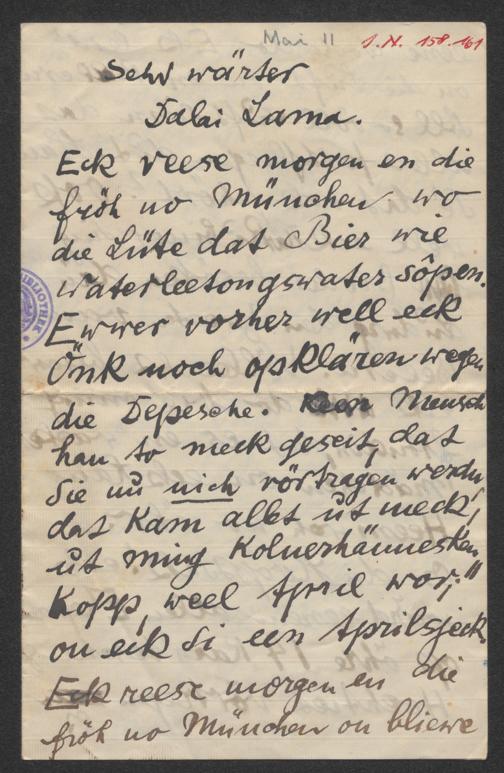 Mai 11
I.N. 158.161
Sehr wärter
Dalai Lama.
Eck reese morgen en die
fröh no München wo
die Lüte dat Bier wie
waterleetongswater sôpen.
Ewwer vorher well eck
Önk noch opklären wegen
die Depesche. Keen Mensch
han to meck geseit, dat
Sie nu nich vörtragen werdn,
dat kam alles ut meck,
ut ming Kolnerhännesken
Kopp, weel April wor,
on eck Si een Aprilsjeck.
Eck reese morgen en die
fröh no München on bliewe
BIBLIOTHEK